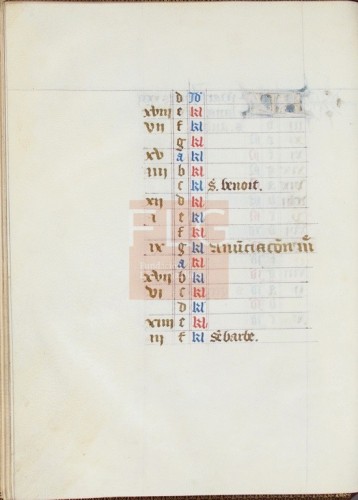 d Jd
xviii e kl
vii f kl
g kl
xv a kl
iiii b kl
c kl S. benoit.
xii d kl
i e kl
f kl
ix g kl Anūciacōn
a kl
xvii b kl
vi c kl
d kl
xiiii e kl
iii f kl Sͤ barbe.